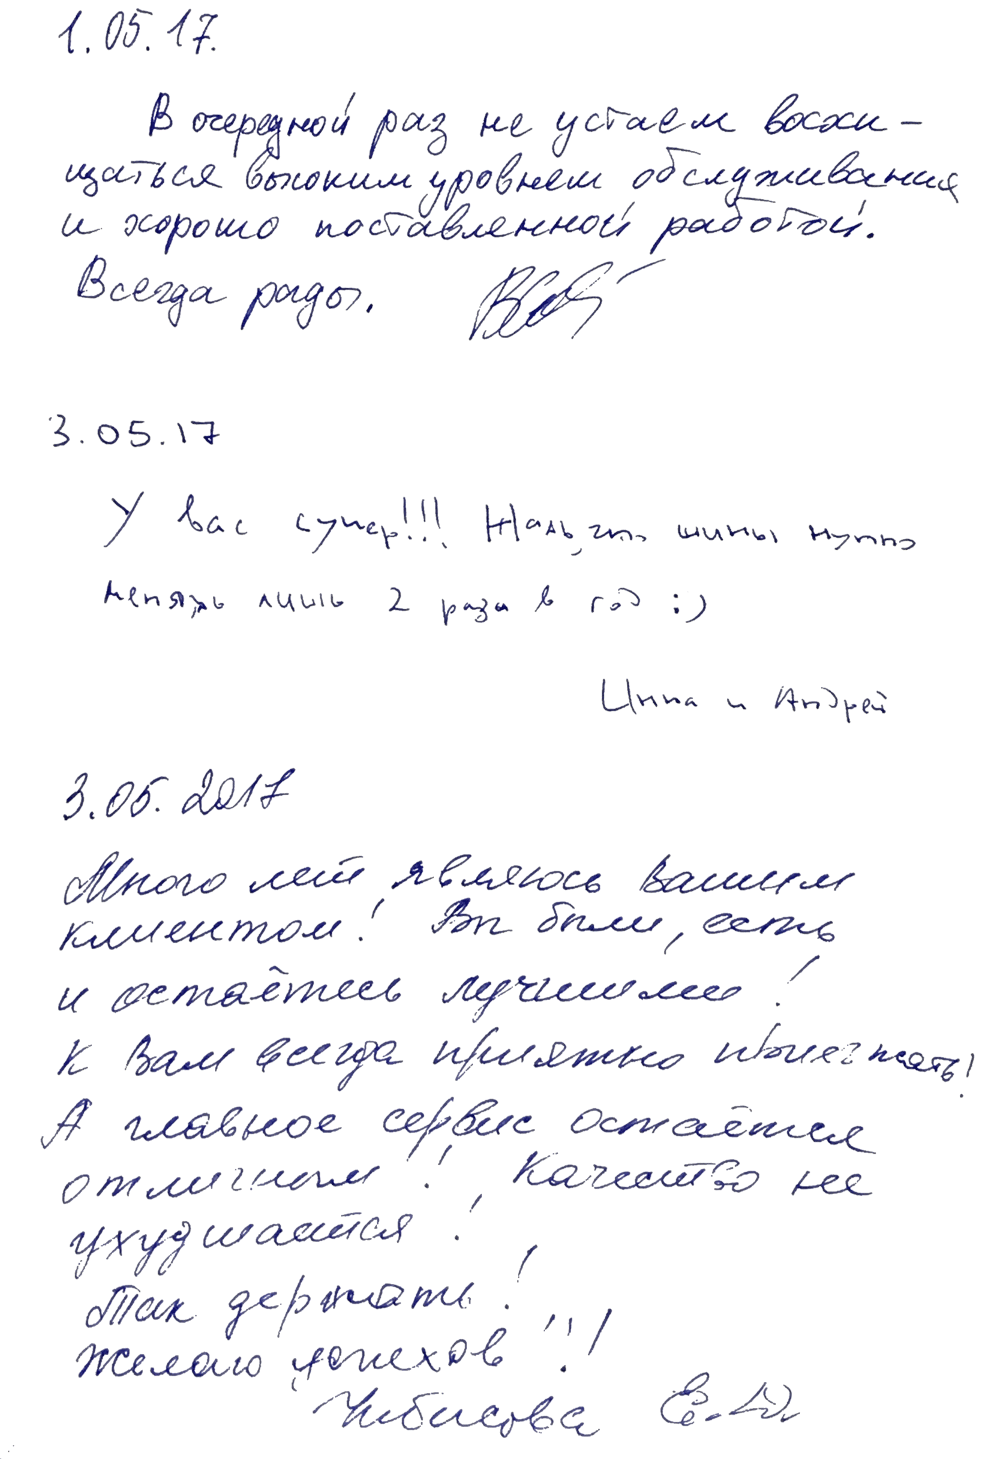 1.05.17.
В очередной раз не устаем восхи-
щаться высоким уровнем обслуживания
и хорошо поставленной работой.
Всегда рады.
3.05.17
У вас супер!!! Жаль, что шины нужно
менять лишь 2 раза в год :)
Инна и Андрей
3.05.2017
Много лет являюсь Вашим
клиентом! Вы были, есть
и остаётесь лучшими!
К Вам всегда приятно приезжать!
А главное сервис остаётся
отличным! Качество не
ухудшается!
Так держать!
Желаю успехов!!!
Чибисова Е.Ю.